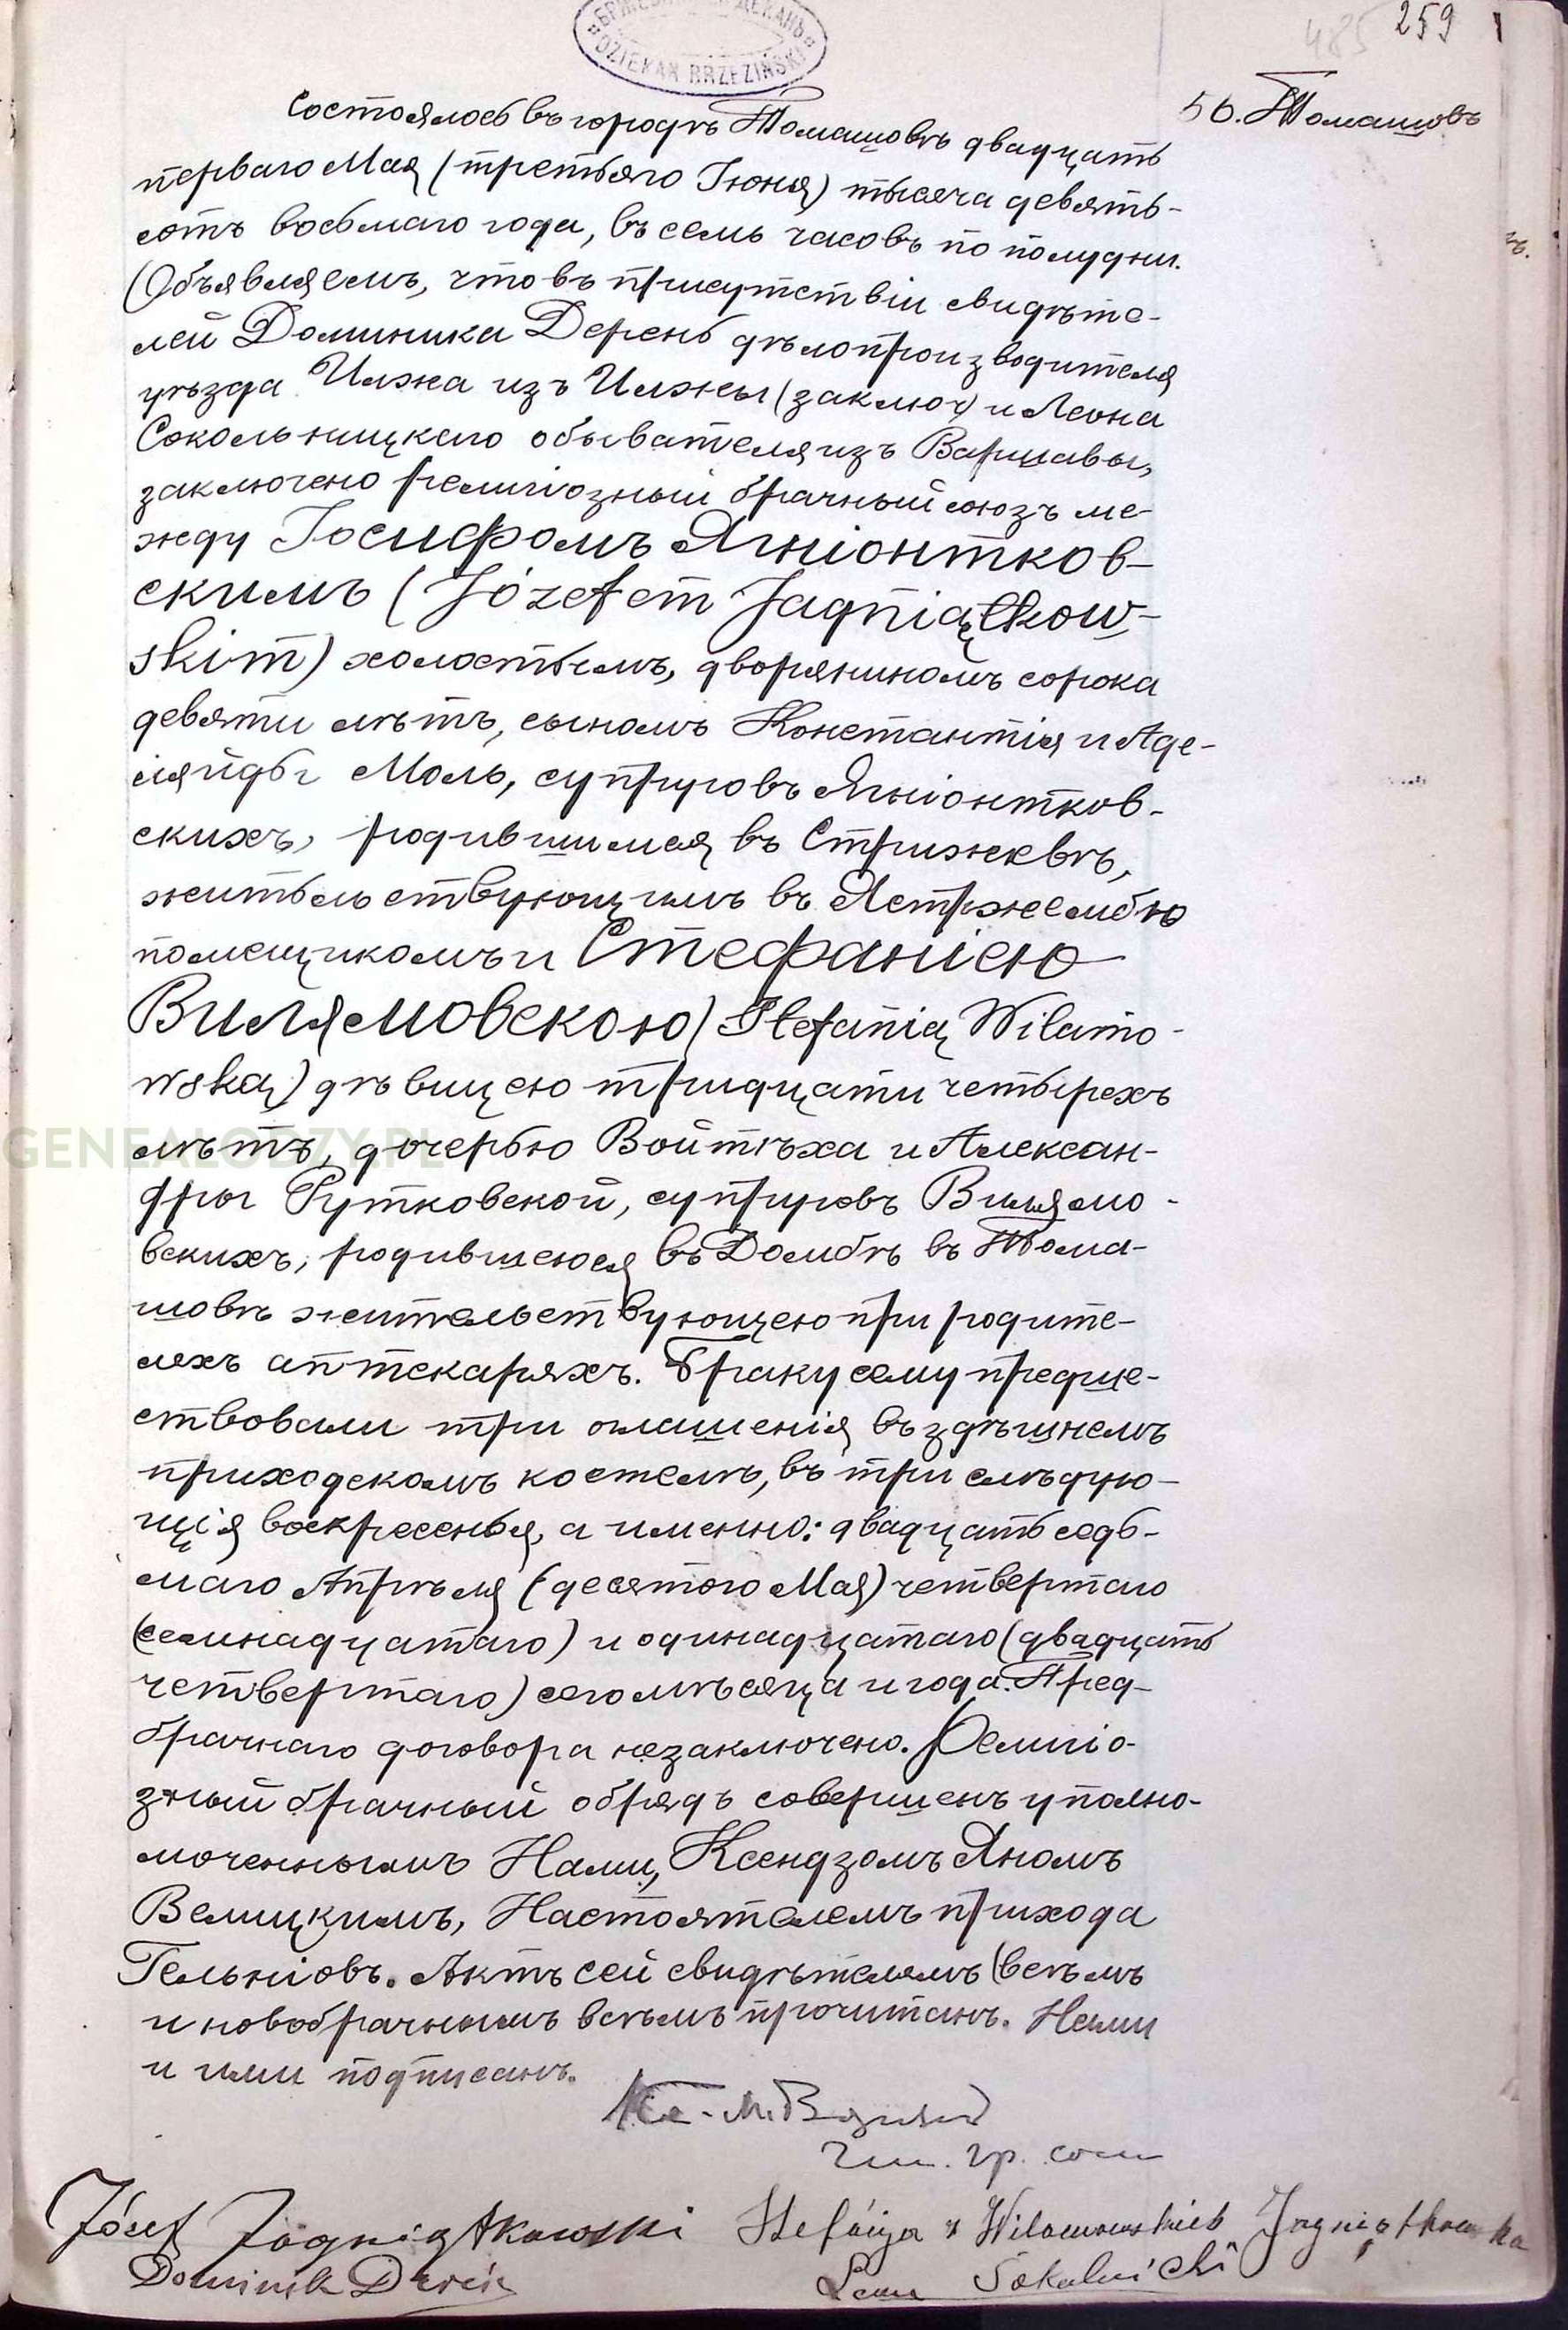 485 259
БРЖЕЗИНСКІЙ ДЕКАНЪ
DZIEKAN BRZEZIŃSKI
56. Томашовъ
Состоялось въ городѣ Томашовѣ двадцать
перваго Мая (третьяго Іюня) тысяча девять-
сотъ восьмаго года, въ семь часовъ по полудни.
Объявляемъ, что въ присутствіи свидѣте-
лей Доминика Дерень дѣлопроизводителя
уѣзда Илжа изъ Илжы (заключ) и Леона
Сокольницкаго обывателя изъ Варшавы,
заключено религіозный брачный союзъ ме-
жду Іосифомъ Ягніонтков-
скимъ (Józefem Jagniątkow-
skim) холостымъ, дворяниномъ сорока
девяти лѣтъ, сыномъ Константія и Аде-
ляйды Моль, супруговъ Ягніонтков-
скихъ, родившимся въ Стрижквѣ,
жительствующимъ въ Ястржембю
помещикомъ и Стефаніею
Вилямовскою (Stefanią Wilamo-
wską) дѣвицею тридцати четырехъ
лѣтъ, дочерью Войтѣха и Алексан-
дры Рутковской, супруговъ Вилямо-
вскихъ, родившеюся въ Домбѣ въ Тома-
шовѣ жительствующею при родите-
ляхъ аптекаряхъ. Браку сему предше-
ствовали три оглашенія въ здѣшнемъ
приходскомъ костелѣ, въ три слѣдую-
щія воскресенья, а именно: двадцать седь-
маго Апрѣля (десятого Мая) четвертаго
(семнадцатаго) и одинадцатаго (двадцать
четвертаго) сего мѣсяца и года. Пред-
брачнаго договора незаключено. Религіо-
зный брачный обрядъ совершенъ уполно-
моченнымъ Нами, Ксендзомъ Яномъ
Велицкимъ, Настоятелемъ прихода
Гельніовъ. Актъ сей свидѣтелямъ всѣмъ
и новобрачнымъ всѣмъ прочитанъ. Нами
и ими подписанъ.
Кс. М.
гр. сост
Józef Jagniątkowski Stefanija z Wilamowskich Jagniątkowska
Dominik Dereń Leon Sokolnicki
GENEALODZY.PL